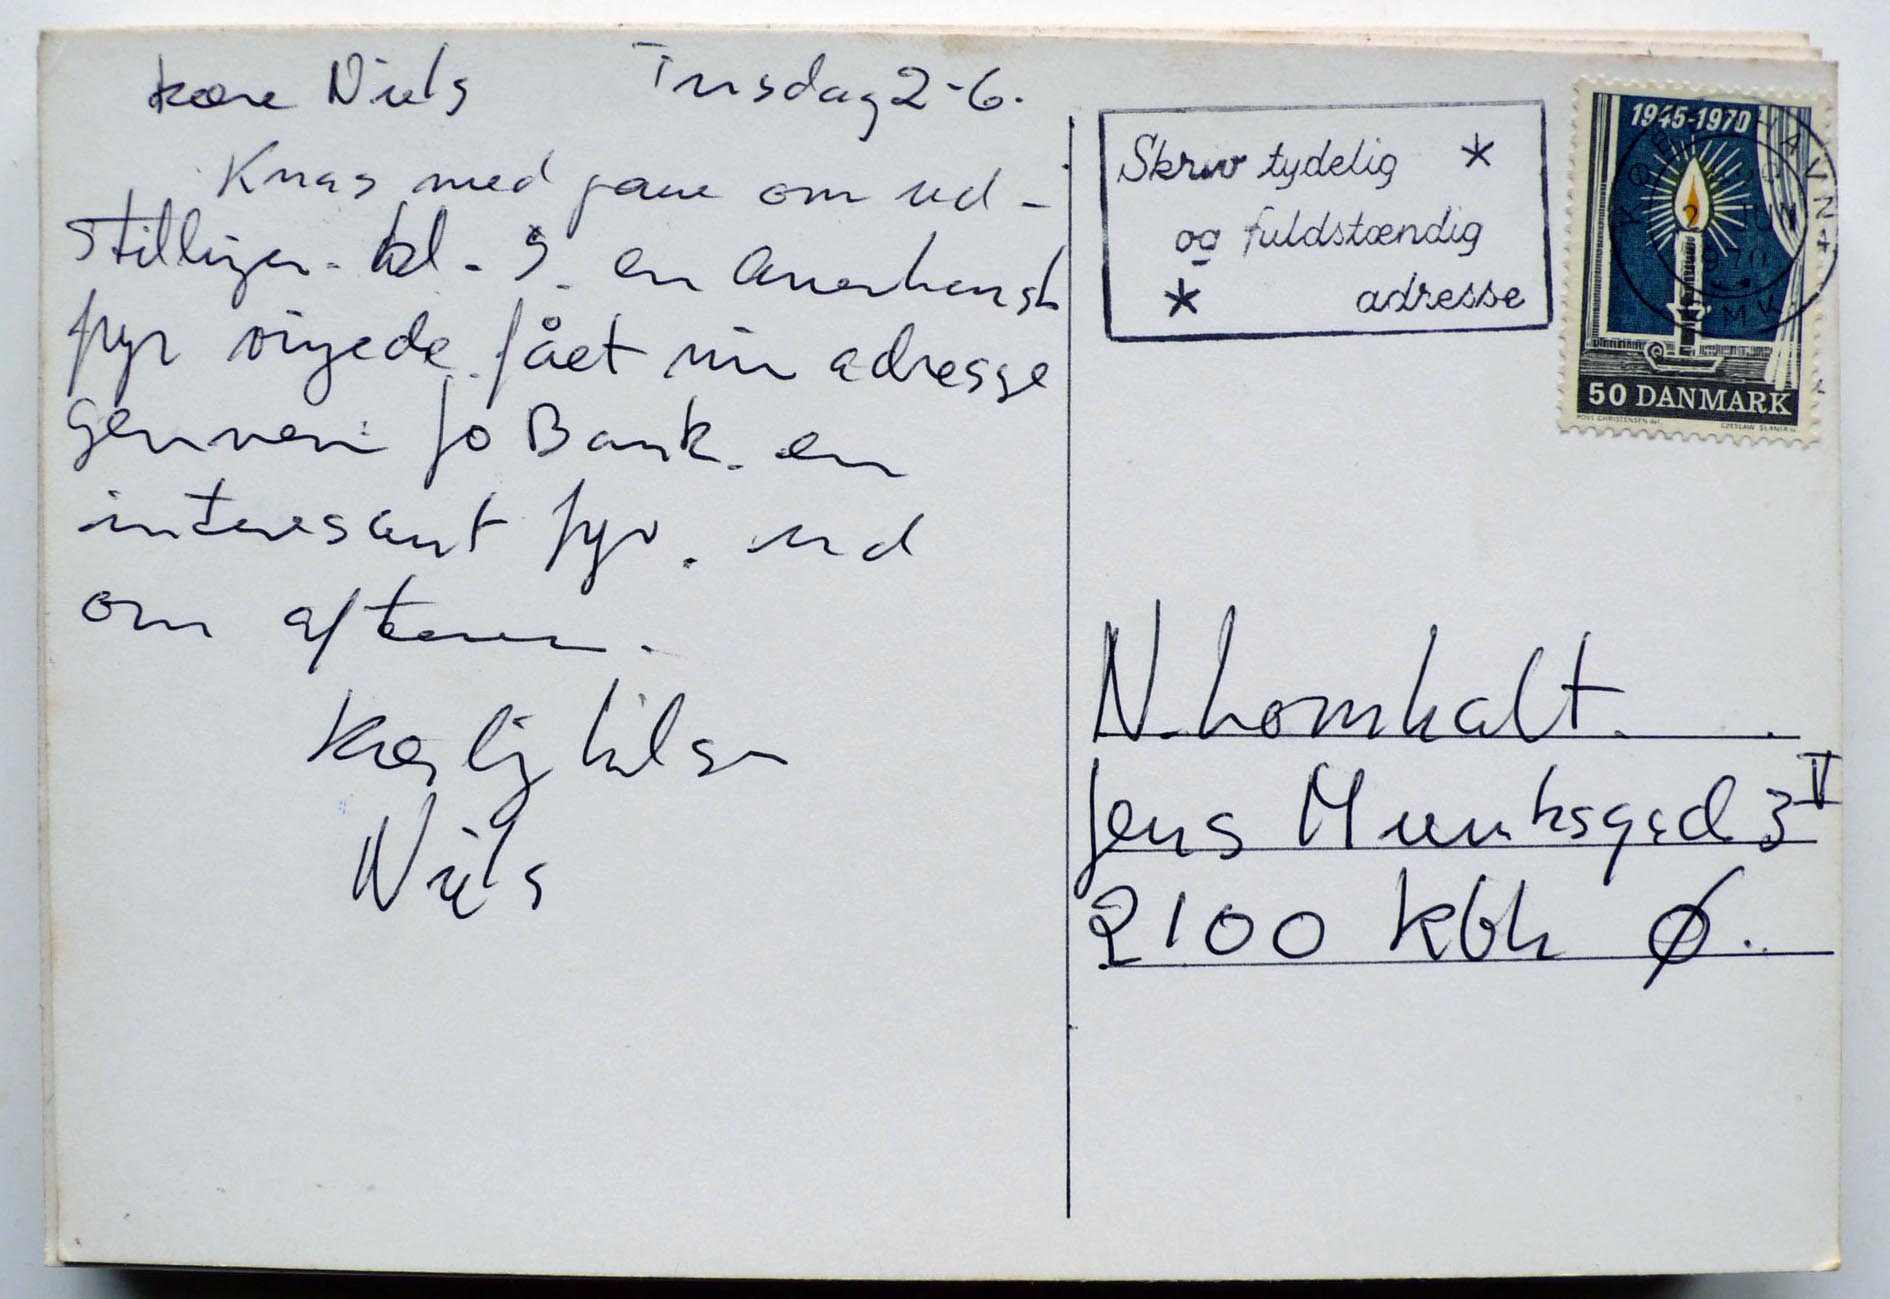 kære Niels Tirsdag 2-6.
Knas med jane om ud-
stillinger. kl. 9. en Amerikansk
fyr ringede. fået min adresse
gennem Jo Bank. en
interesant fyr. ud
om aftenen.
Kærlig hilsen
Niels
Skriv tydelig *
og fuldstændig
* adresse
1945-1970
KØBENHAVN
2 JUN
1970
50 DANMARK
POVL CHRISTENSEN del. CZESLAW SLANIA sc.
N. Lomholt.
Jens Munksgad 3 V
2100 kbh Ø.